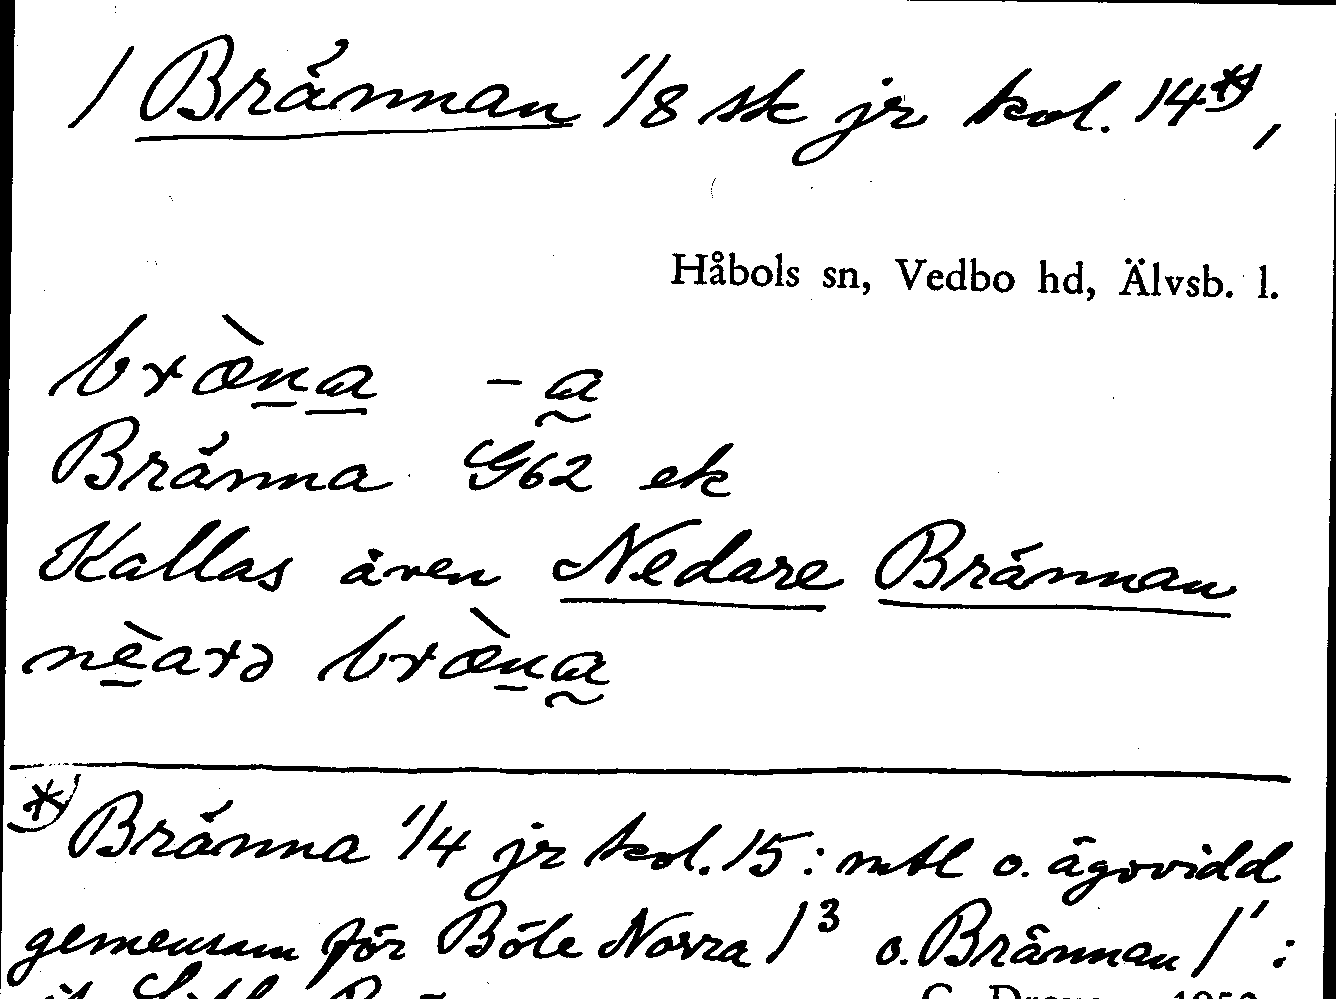 1 Brännan 1/8 sk jr kol. 14*),
Håbols sn, Vedbo hd, Älvsb. l.
bræ̀na -a
Bränna G62 ek
Kallas även Nedare Brännan
nèarə bræ̀na
*) Bränna 1/4 jr kol. 15: mtl o. ägovidd
gemensam för Böle Norra 1³ o. Brännan 1¹: